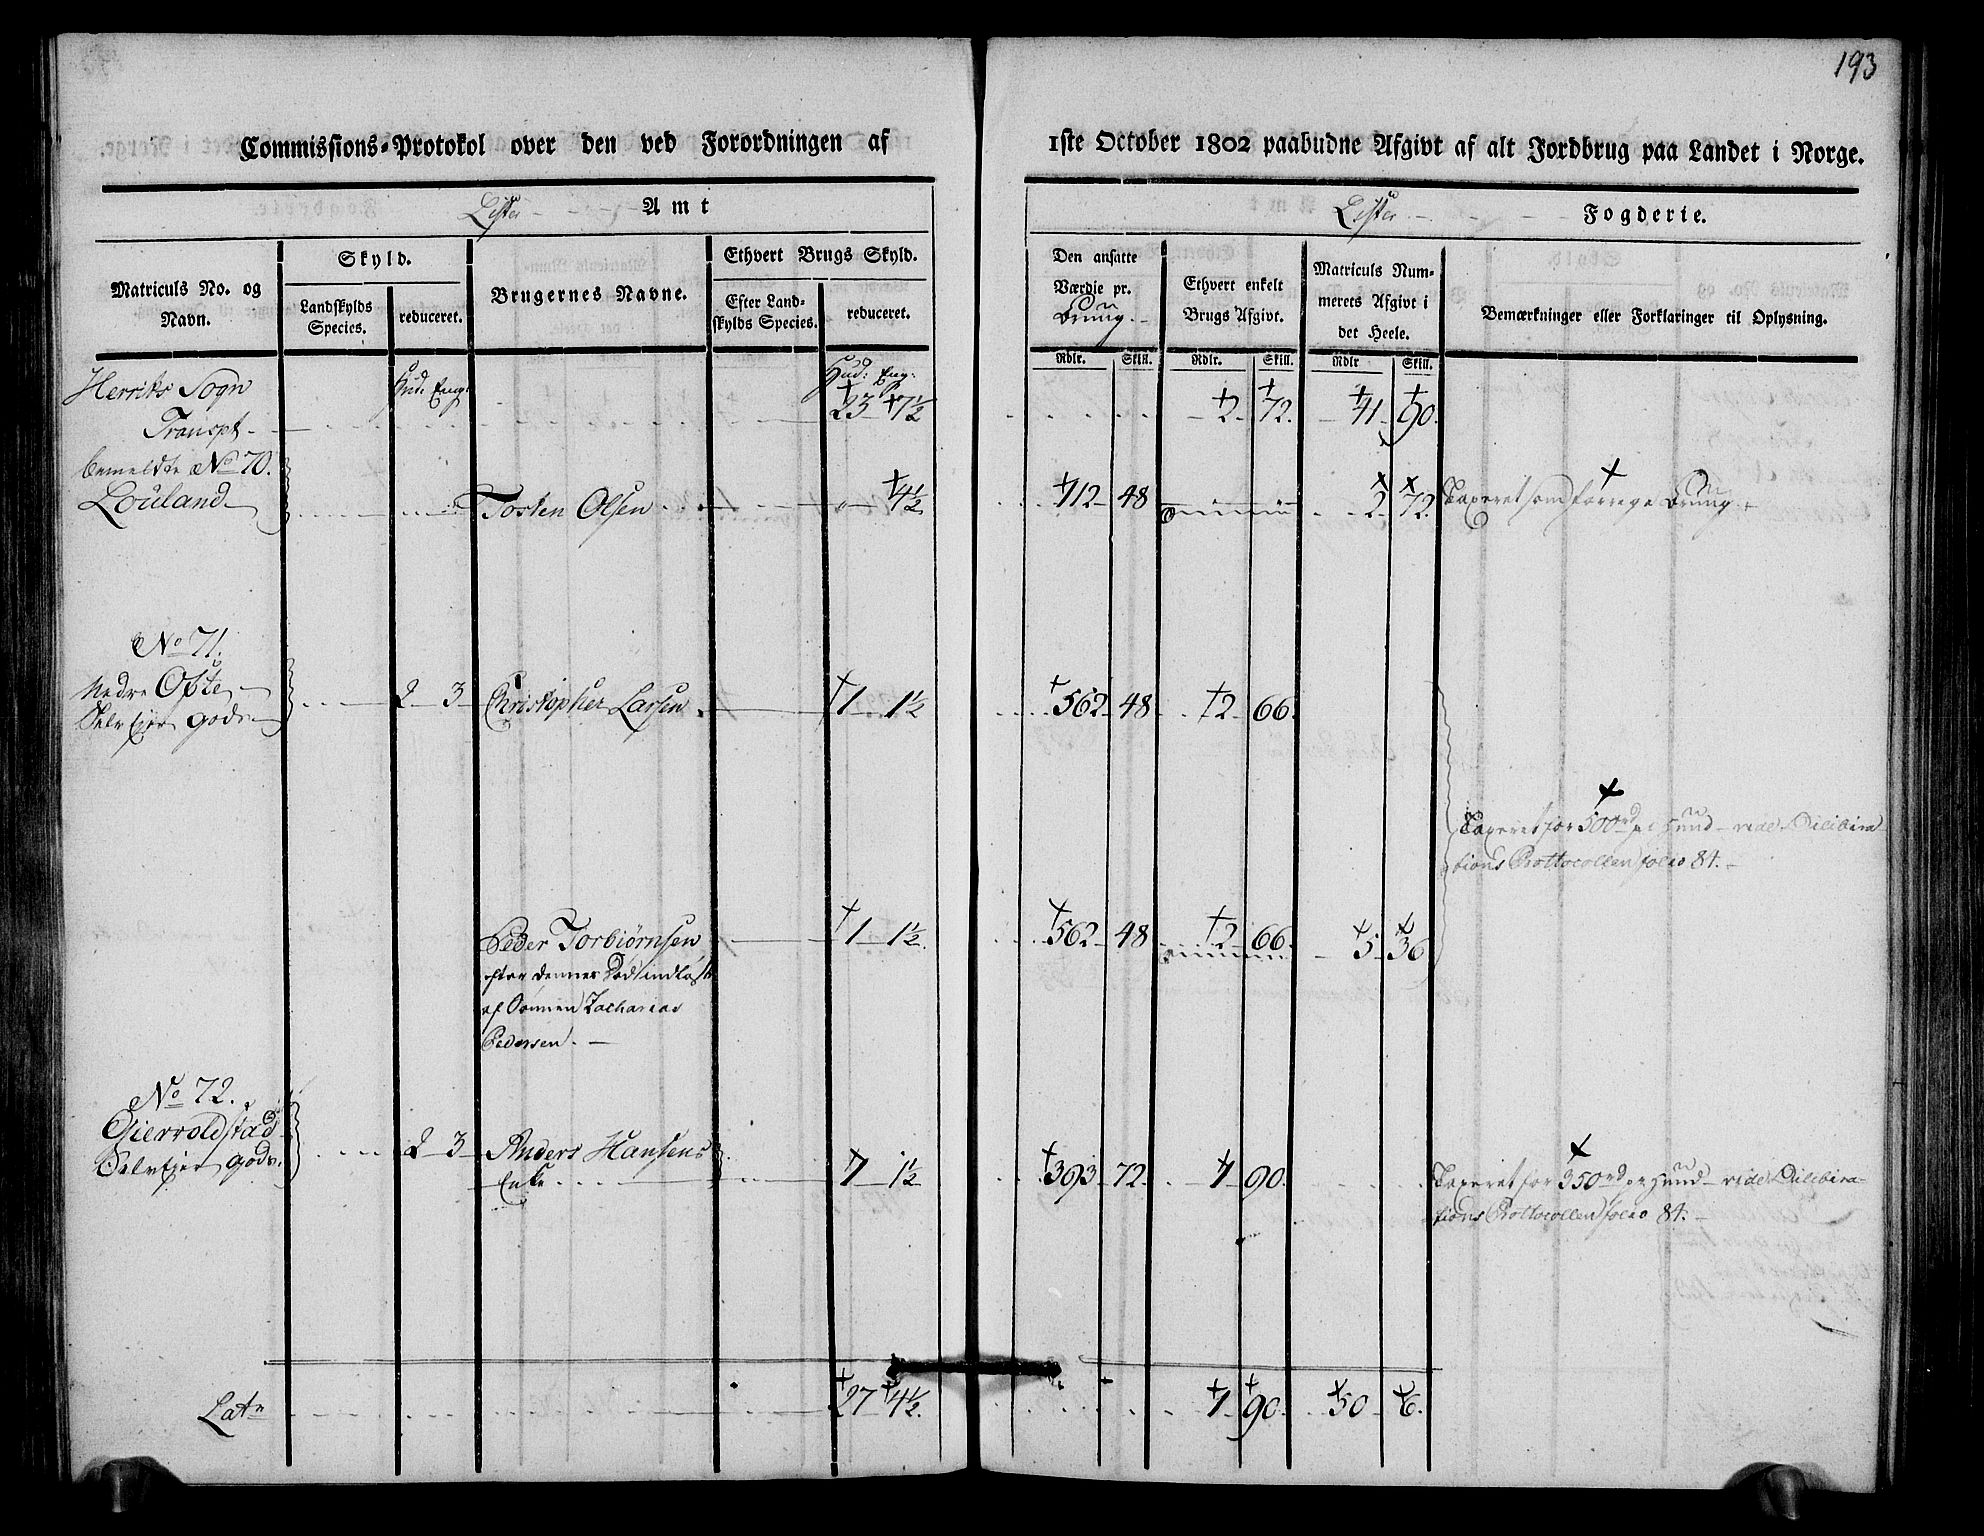 193
Commissions-Protokol over den ved Forordningen af 1ste October 1802 paabudne Afgivt af alt Jordbrug paa Landet i Norge.
Lister Amt
Lister Fogderie.
Matriculs No. og Navn.
Skyld.
Landskylds Species.
reduceret.
Brugernes Navne.
Ethvert Brugs Skyld.
Efter Landskylds Species.
reduceret.
Den ansatte Værdie pr. Bruug.
Ethvert enkelt Brugs Afgivt.
Matriculs Nummerets Afgivt i det Heele.
Bemærkninger eller Forklaringer til Oplysning.
Rdlr. Skill. Rdlr. Skill. Rdlr Skill.
Herrits Sogn Hud: Eng: Hud: Eng:
Transpt. 23 7½ 2. 72. 41. 90.
bemeldte No 70.
Louland Tosten Olsen " 4½ 112 48 2. 72. Taxeret som forrige Bruug.
No 71.
Nedre Ofte 2 3 Christopher Larsen 1 1½ 562 48 2 66.
Selv Ejer Gods
Taxeret for 500rd pr Huud vide Delibera
tions Prottocollen folio 84.
Peder Torbiørnsen 1 1½. 562 48 2 66. 5 36
efter dennes Død indløst
af Sønnen Zacharias
Pedersen.
No 72.
Gierroldstad
Selv Ejer Gods. 2 3 Anders Hansens 1 1½ 393 72. 1 90. Taxeret for 350rd pr Huud vide Delibera-
Enke tions Prottocollen folio 84.
Latr 27 4½. 1 90. 50 6.